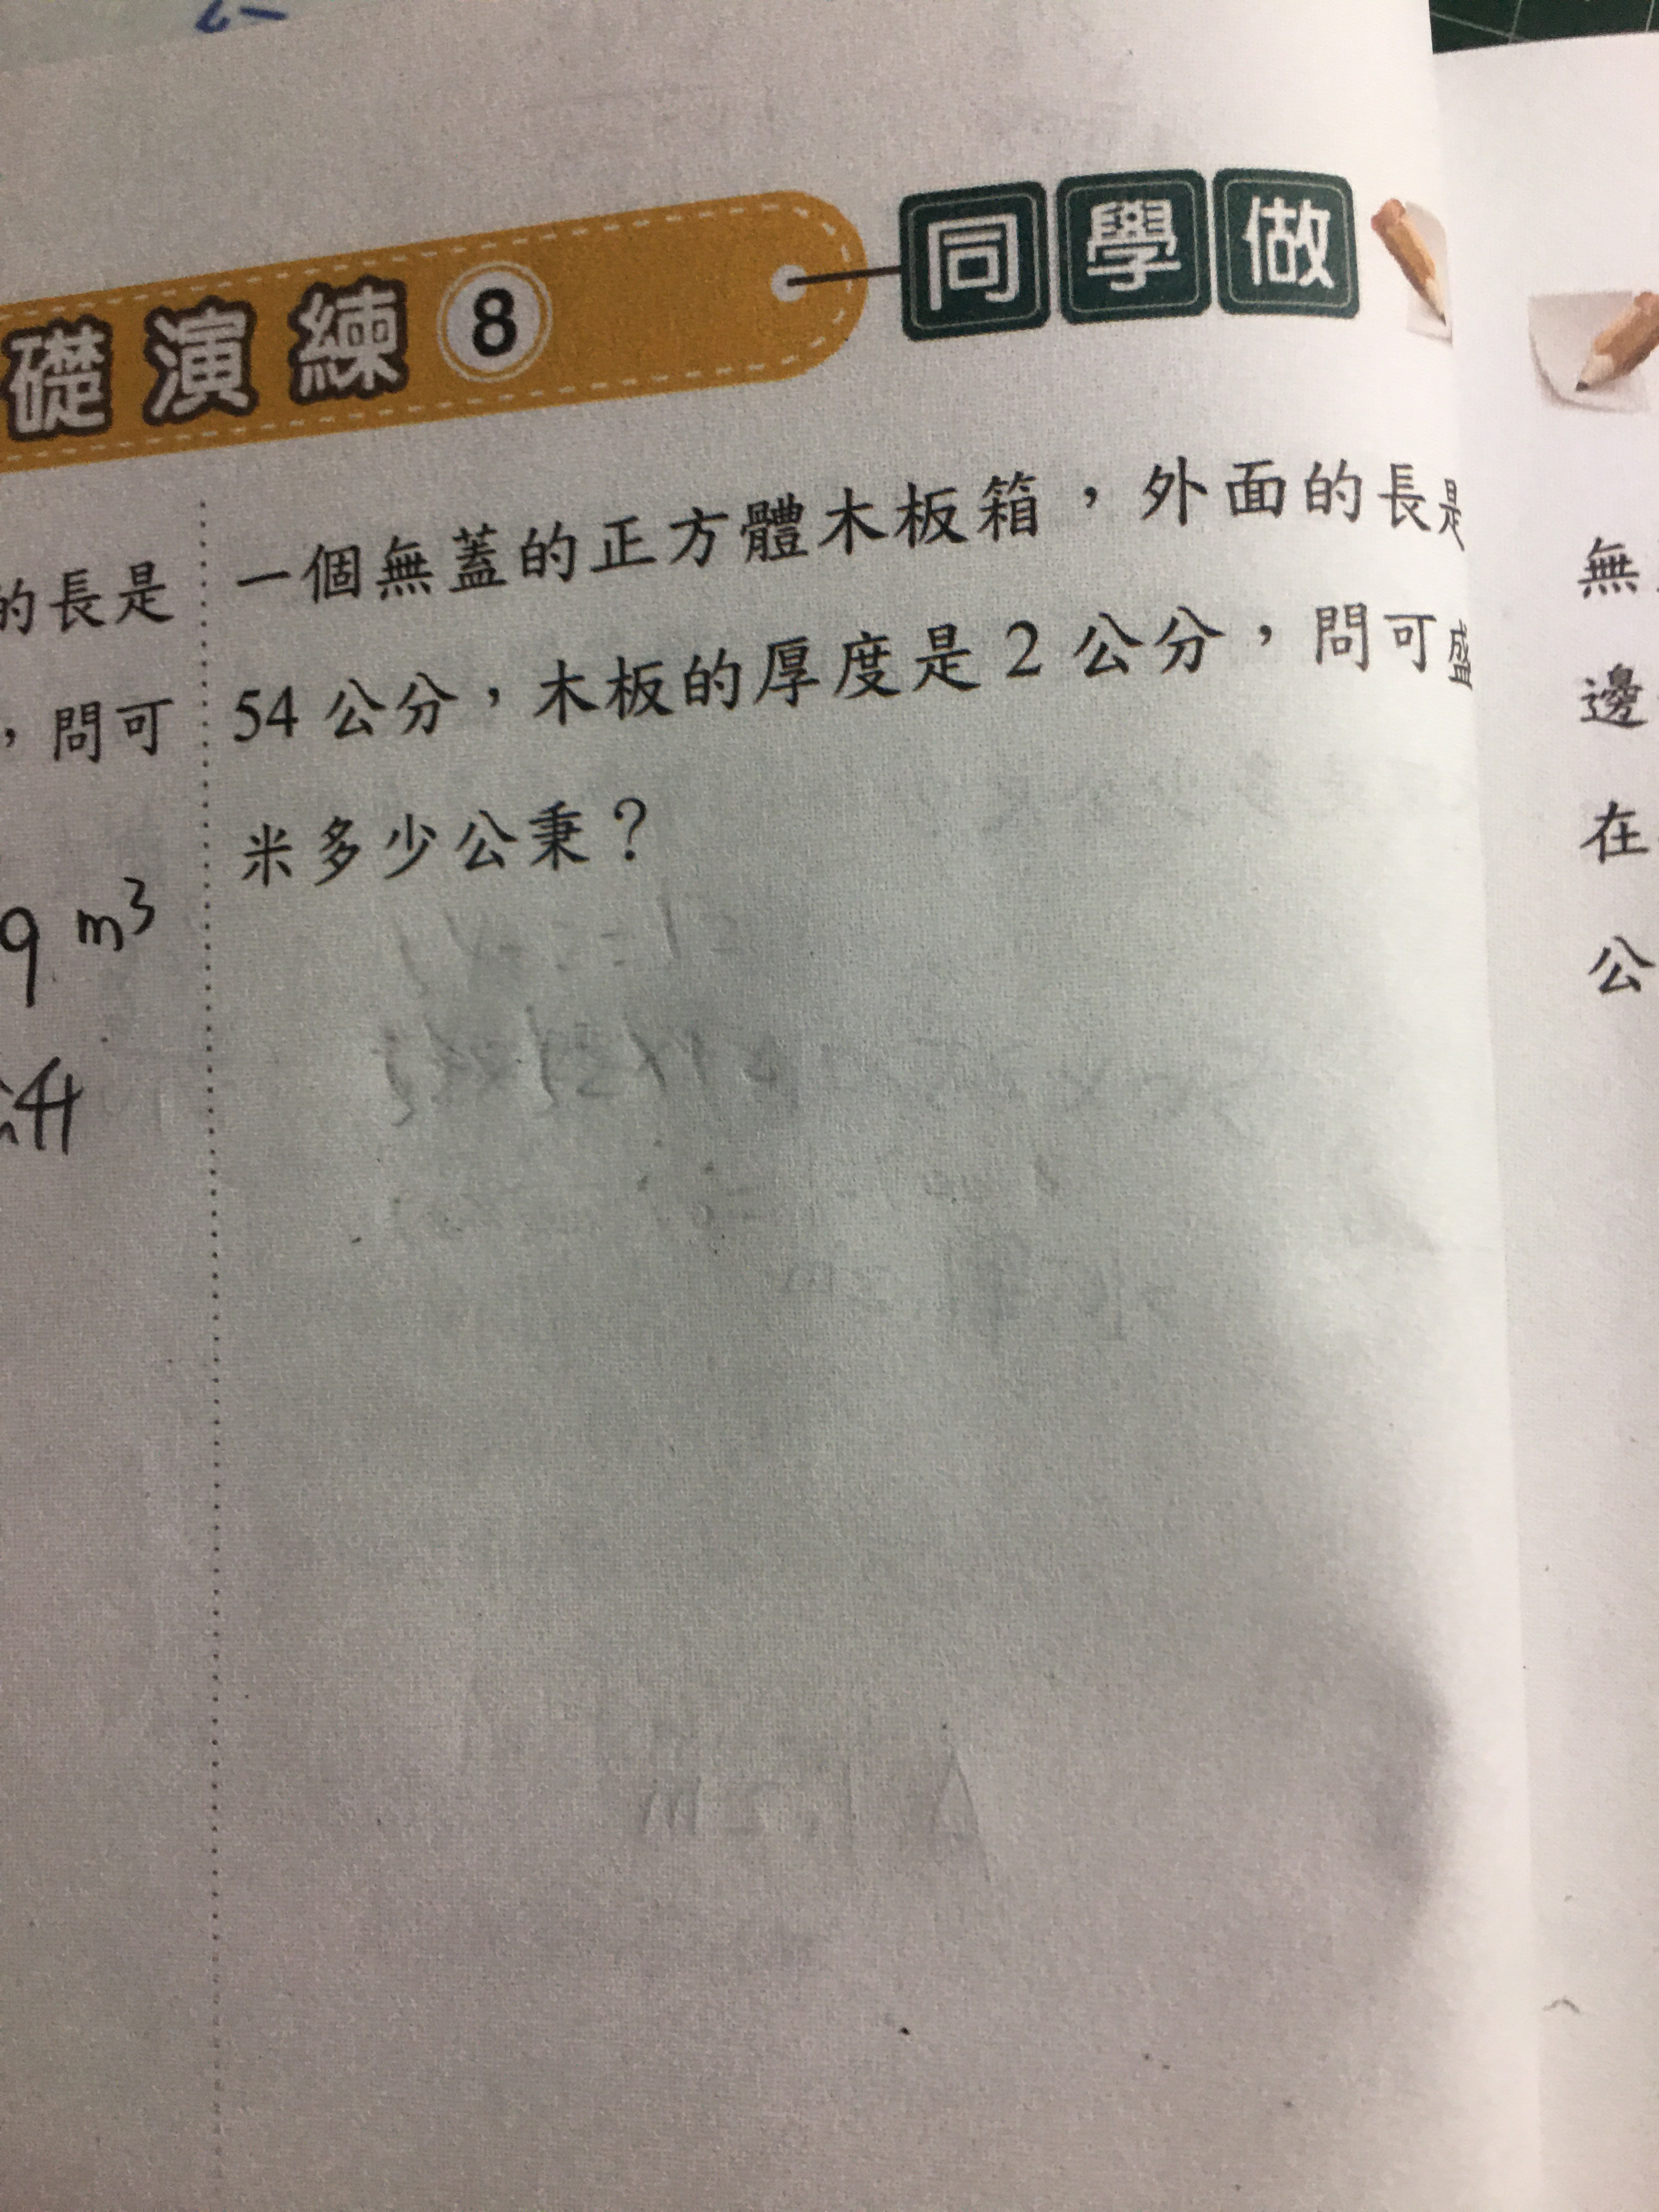 礎演練8
同學做
的長是
，問可
9 m³
一個無蓋的正方體木板箱，外面的長是
54 公分，木板的厚度是 2 公分，問可盛
米多少公秉？
無
邊
在
公